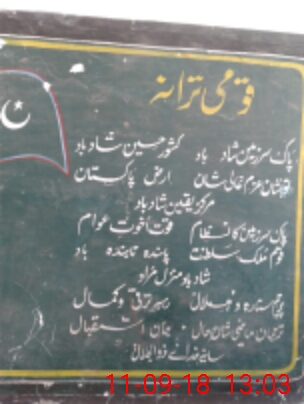 قومی ترانہ
پاک سرزمین شاد باد کشور حسین شاد باد
تو نشان عزم عالی شان ارض پاکستان
مرکز یقین شاد باد
پاک سرزمین کا نظام قوت اخوت عوام
قوم ملک سلطنت پائندہ تابندہ باد
شاد باد منزل مراد
پرچم ستارہ و ہلال رہبر ترقی و کمال
ترجمان ماضی شان حال جان استقبال
سایہ خدائے ذوالجلال
11-09-18 13:03